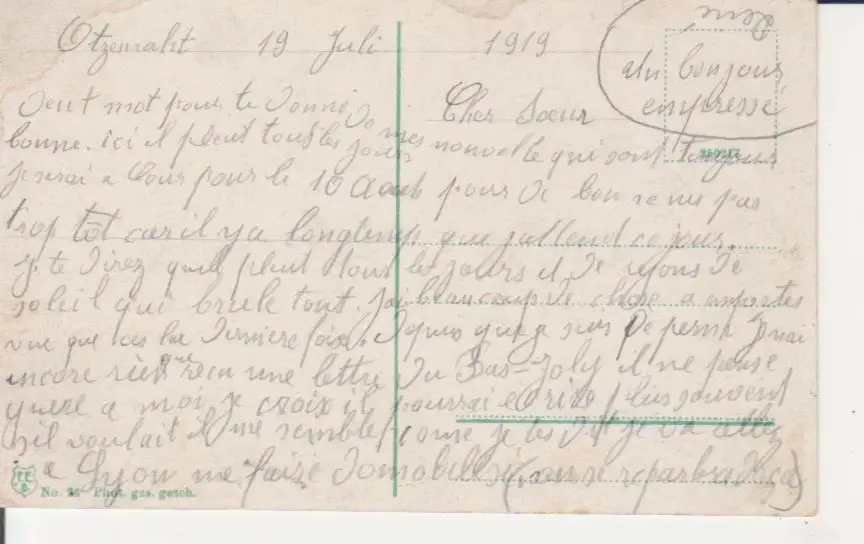 19 Juli 1919
René
un bonjour
empressé
Cher Soeur
Deut mot pour te donné de mes nouvelle qui sont toujour
bonne. ici il pleut tout les jours
je serai a pour le 10 Aout pour de bon se nes pas
trop tôt car il y a longtemp que jattend ce jour.
je te direz quil pleut tout les jours et de de
soleil qui brule tout. jai beaucoup de chose a emportes
vue que ces la derniere fois. depuis que je suis de perm jnai
encore rien reçu une lettre du Bas-Joly il ne pense
guere a moi je crois il pourrai ecrire plus souvent
sil voulait il me semble come je tes dit je va allez
a Lyon me faire
No. Phot. ges. gesch.